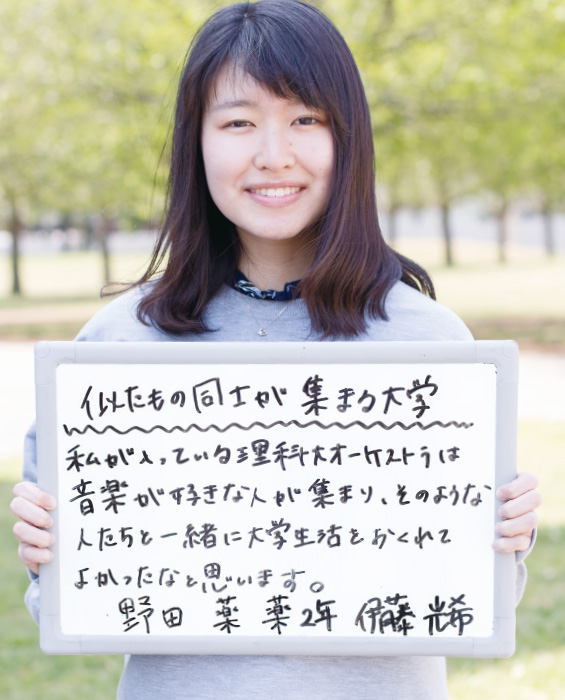 似たもの同士が集まる大学
私が入っている理科大オーケストラは
音楽が好きな人が集まり、そのような
人たちと一緒に大学生活をおくれて
よかったなと思います。
野田 薬 薬 2年 伊藤 光希